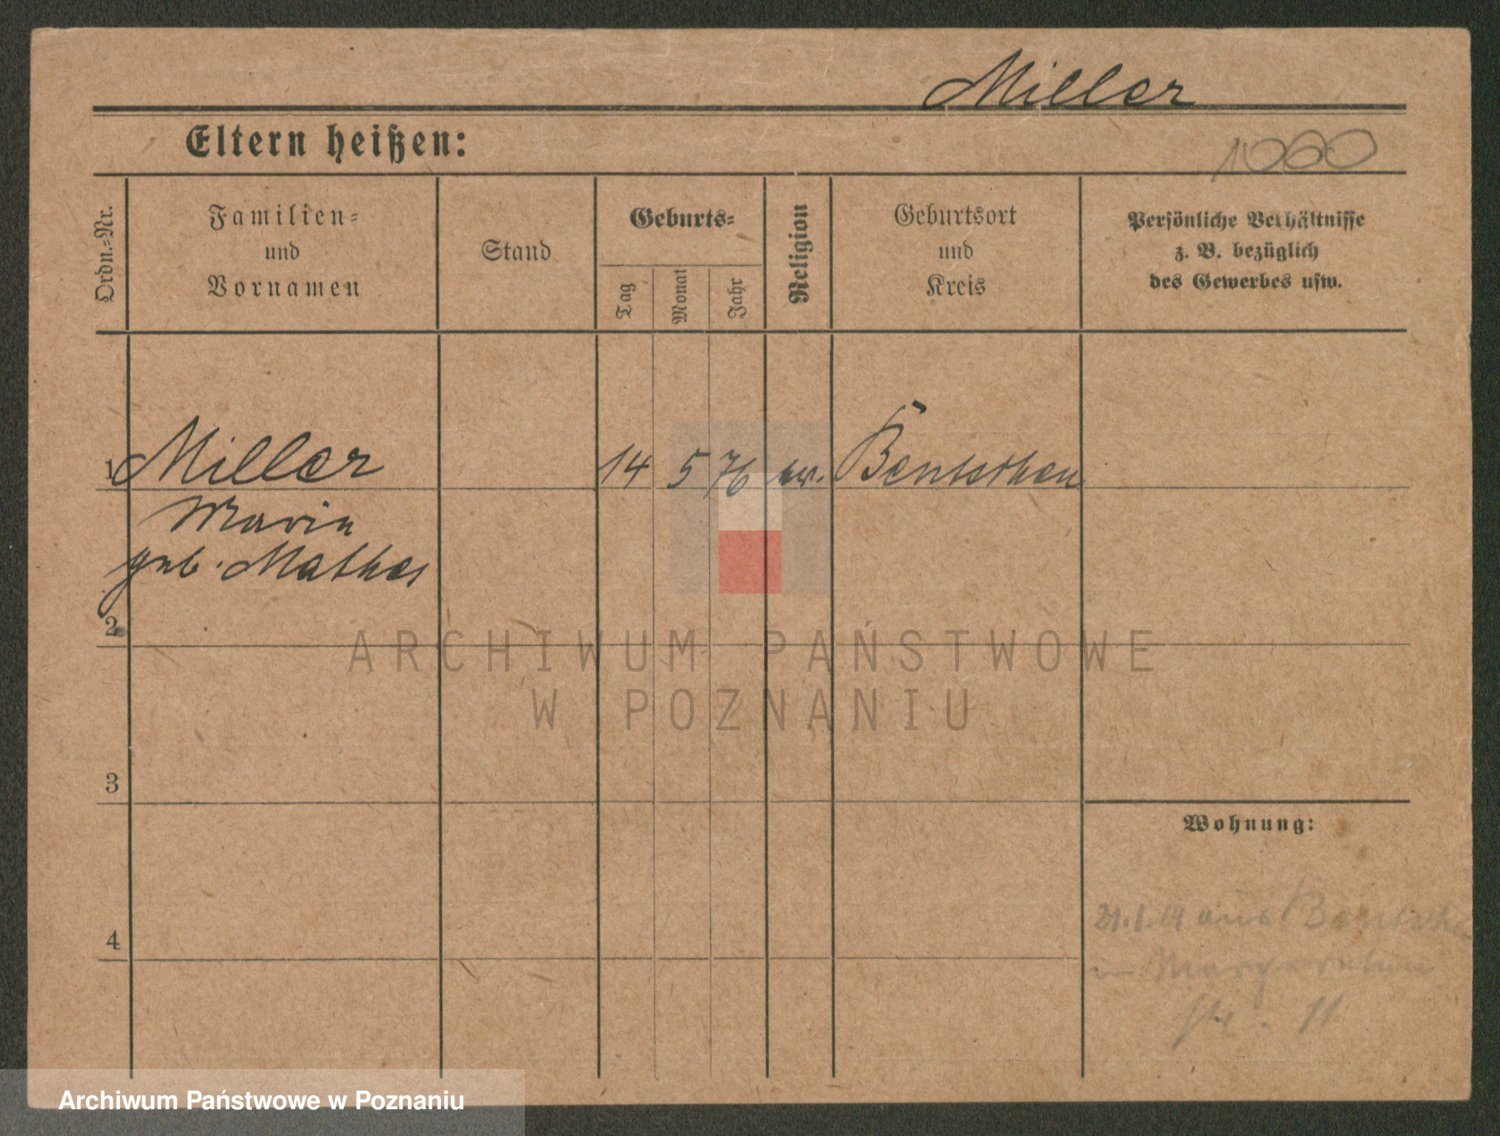 Miller
Eltern heißen:
1000
Ordn.-Nr.
Familien-
und
Vornamen
Stand
Geburts-
Tag
Monat
Jahr
Religion
Geburtsort
und
Kreis
Persönliche Verhältnisse
z. B. bezüglich
des Gewerbes usw.
1 Miller 14 5 76 ev. Bentschen
Maria
geb. Mathes
2
3
Wohnung:
4
21.1.19 aus Bentschen
in Margareten
str. 11
ARCHIWUM PAŃSTWOWE
W POZNANIU
Archiwum Państwowe w Poznaniu